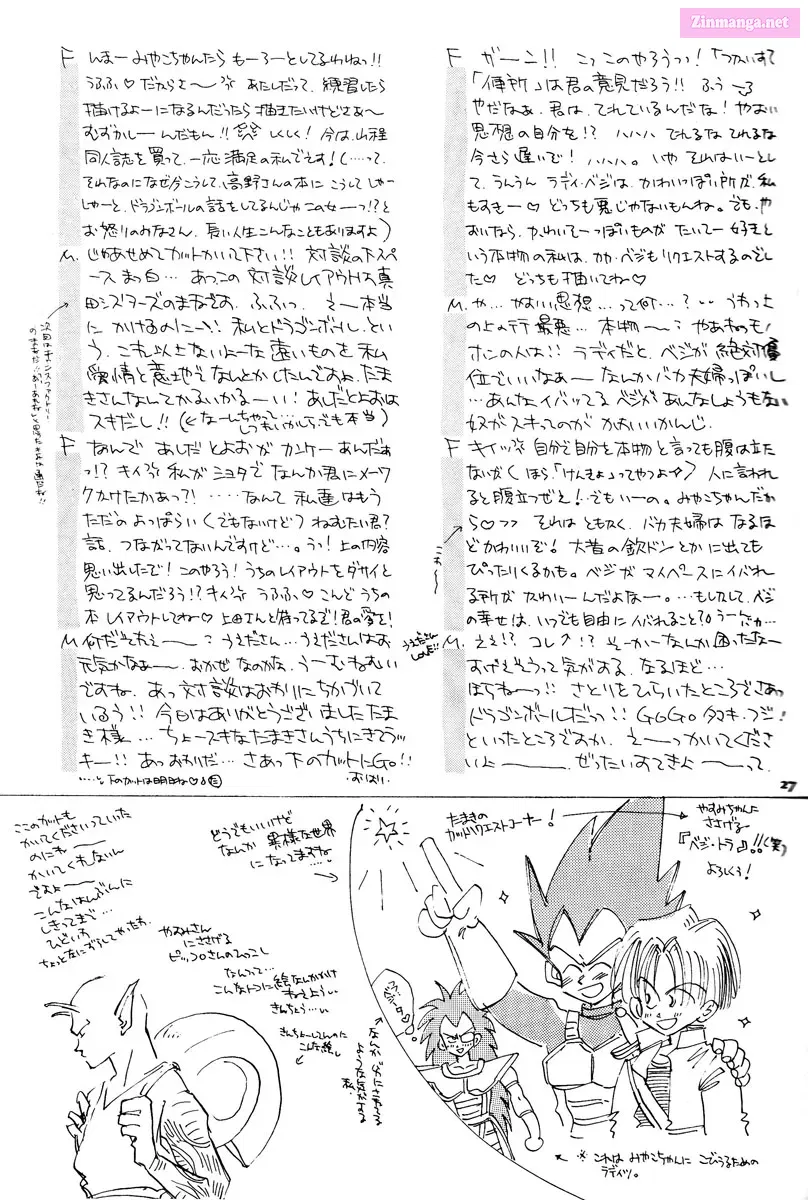 Zinmanga.net
F ガーン!! こっこのやろうっ!「つかいすて
「便所」は君の意見だろう!! ふう
やだなあ、君は、てれているんだな! やおい
思想の自分を!? ハハハ てれるな てれるな
今さら遅いで! ハハハ。いや それはいーとし
て、うんうん ラディ・ベジは、かわいっぽい所が、私
もすきー♡ どっちも悪じゃないもんね。でも、や
おいなら、かわいてーっぽいものが たいてー 好きと
いう本物の私は、カカ・ベジもリクエストするのでし
た♡ どっちも描いてね♡
M. や…やおい思想…って何…?‥ うわっ上
の上の行 最悪… 本物〜〜? やあねのモノ
ホンの人は!! ラディだと、ベジが絶対優
位でいいなあー なんかバカ夫婦っぽいし
…あんなイバッてるベジが あんなしょうもない
奴がスキってのが かわいいかんじ。
F キイッ 自分で自分を本物と言っても腹は立た
ないが(ほら、「けんきょ」ってやつよ☆) 人に言われ
ると腹立つぜえ! でもいーの。みやこちゃんだか
ら♡ それは ともかく、バカ夫婦は なるほ
ど かわいいぞ! 大昔の欽ドンとかに出ても
ぴったりくるかも。ベジが マイペースに イバれ
る所が かわいーんだよなー。…もしかして、ベジ
の幸せは、いつでも自由に イバれること?
M. ええ!? コレク!? そーかーなんか困ったなー
って気がする、なるほど…
ほらねーっ!! さとりをひらいたところでさあっ
ドラゴンボールだっっ!! GoGo タマキ・フジ!
といったところですか。えーっ かいてくださ
いよ〜〜〜。ぜったいすてきよーって。
こぉ〜
27
F んまーみやこちゃんたら もーろーとしてるわねっ!!
うふふ♡ だからさ〜〜 あたしだって、練習したら
描けるよーになるんだったら描きたいけどさぁ〜
むずかしーんだもん!! しくしく! 今は、山程
同人誌を買って、一応満足の私でえす!(…って、
それなのになぜ今こうして、高野さんの本に こうして しゃー
しゃーと、ドラゴンボールの話をしてるんじゃ この女ーっ!?と
お怒りのみなさん、長い人生こんなこともありますよ)
M. じゃあせめてカットかいて下さい!! 対談の下スペ
ースまっ白… あっこの対談レイアウトは真
田シスターズのまねです。ふふっ。えー本当
に かけるのにーっ! 私とドラゴンボール、とい
う、これ以上ないよーな遠いものを 私
愛情と意地でなんとかしたんですよ、たま
きさんなんてかるいかるーい! あしだとよおは
スキだし!! (←なーんちゃって…でも本当)
F なんで あしだとよおが カンケーあんだぁ
っ!? キイ 私が ショタで なんか君にメーワ
クかけたかあっ?! ・・・・・なんて 私達はもう
ただの よっぱらい(でもないけど) ねむたい君?
話、つながってないんですけど…。うっ! 上の内容
思い出したで! このやろう! うちのレイアウトをダサイと
思ってるんだろう!? キイ うふふ♡ こんど うちの
本 レイアウトしてね♡ 上田さんと待ってるで! 君の愛を!
うえださん
LOVE!!
M. 何だっておえ〜〜? うえださん…うえださんはお
元気かなぁ〜。おかぜ なのかな、うーむねむい
ですね。あっ対談はおわりにちかづいて
いるう!! 今日はありがとうございました たま
き様… ちょースキなたまきさんうちにきてラッ
キー!! あっ おわりだ… さあっ下のカットにGo!!
・・・・と下のカットは明日ね♡ おわり。
ここのカットも
かいてくださいっていった
のにねー
かいてくれないん
ですよ〜
こんなはんぶんに
しきってまで…
ひどいわ
ちょっと左にずらしてやったわ。
どうでもいいけど
なんか 異様な世界
に なってますね
やすみさん
にささげる
ピッコロさんのつもり
なんつって…
こんなトコに絵なんかかけ
ねぇよう…
きんちょう…い
きんちょーしてんのに
こんな絵し
たまきの
カットリクエストコーナー!
やすみちゃんに
ささげる
『ベジ・トラ』!!(笑)
よろしく!
※ これは みやこちゃんに こびうるための
ラディッツ。